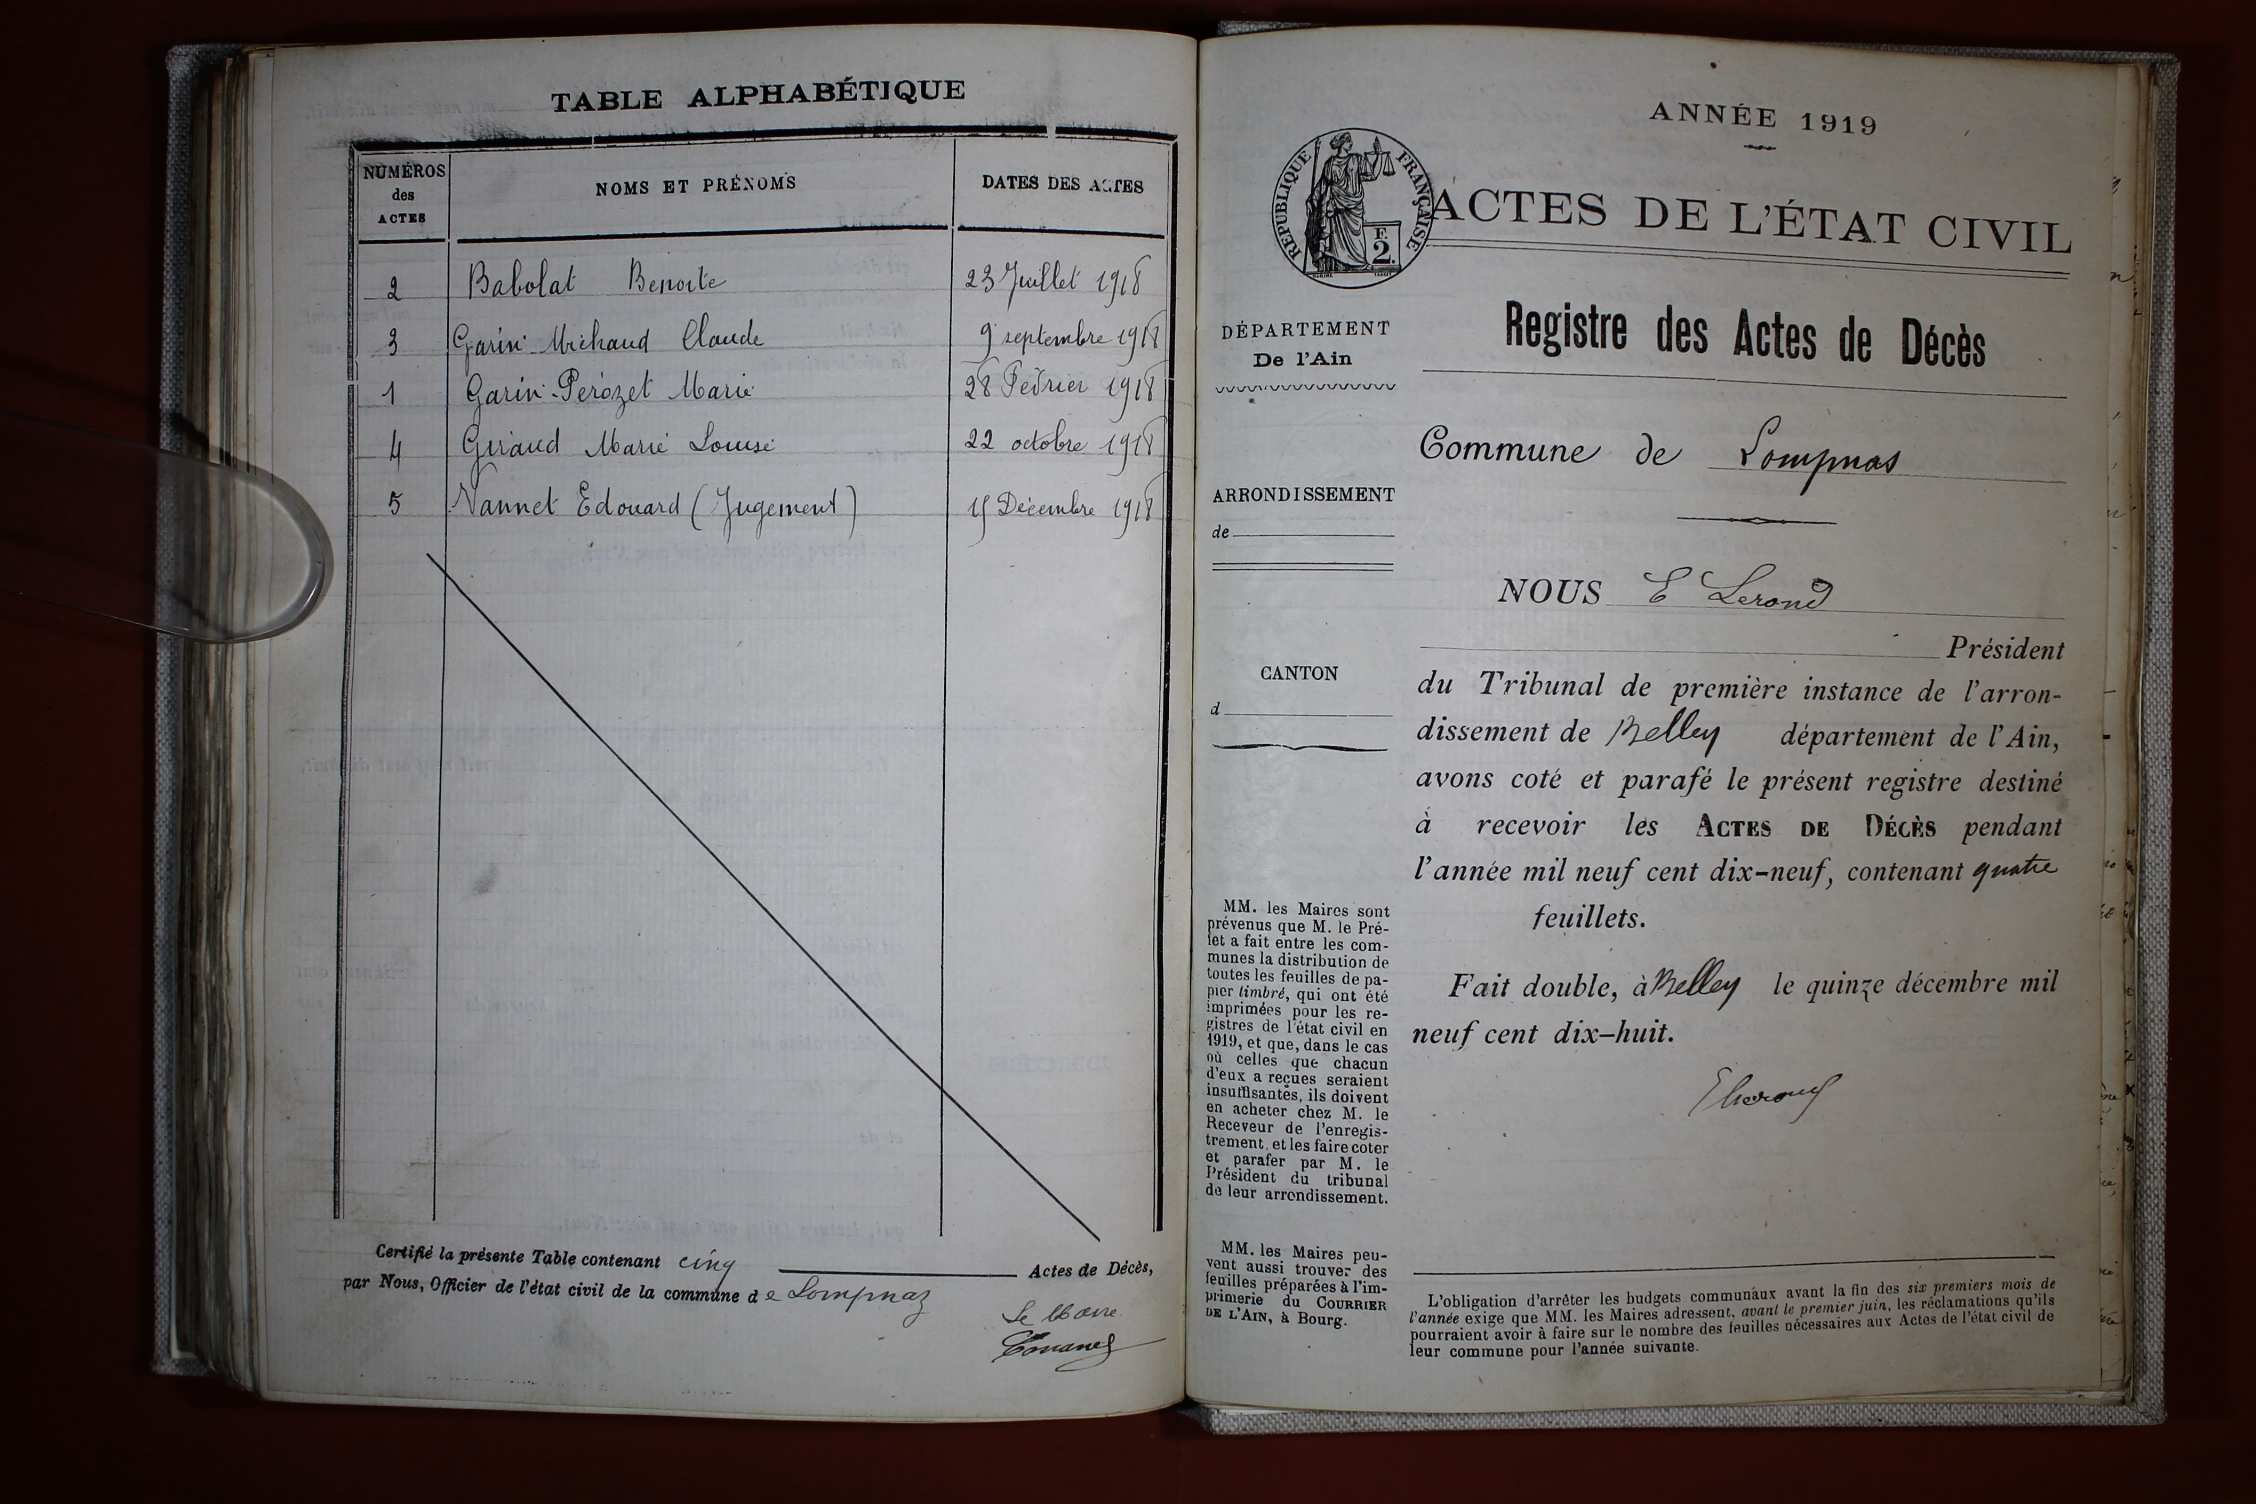 TABLE ALPHABÉTIQUE
NUMÉROS des ACTES
NOMS ET PRÉNOMS
DATES DES ACTES
2 Babolat Benoite 23 Juillet 1918
3 Garin-Michaud Claude 9 septembre 1918
1 Garin-Perozet Marie 28 Février 1918
4 Giraud Marie Louise 22 octobre 1918
5 Vannet Edouard (Jugement) 15 Décembre 1918
Certifié la présente Table contenant cinq Actes de Décès,
par Nous, Officier de l'état civil de la commune de Lompnaz
Le Maire
ANNÉE 1919
RÉPUBLIQUE FRANÇAISE
F. 2.
ACTES DE L'ÉTAT CIVIL
Registre des Actes de Décès
DÉPARTEMENT
De l'Ain
Commune de Lompnas
ARRONDISSEMENT
de
CANTON
d
NOUS E Lerond
Président
du Tribunal de première instance de l'arron-
dissement de Belley département de l'Ain,
avons coté et parafé le présent registre destiné
à recevoir les ACTES DE DÉCÈS pendant
l'année mil neuf cent dix-neuf, contenant quatre
feuillets.
Fait double, à Belley le quinze décembre mil
neuf cent dix-huit.
MM. les Maires sont
prévenus que M. le Pré-
fet a fait entre les com-
munes la distribution de
toutes les feuilles de pa-
pier timbré, qui ont été
imprimées pour les re-
gistres de l'état civil en
1919, et que, dans le cas
où celles que chacun
d'eux a reçues seraient
insuffisantes, ils doivent
en acheter chez M. le
Receveur de l'enregis-
trement, et les faire coter
et parafer par M. le
Président du tribunal
de leur arrondissement.
MM. les Maires peu-
vent aussi trouver des
feuilles préparées à l'im-
primerie du COURRIER
DE L'AIN, à Bourg.
L'obligation d'arrêter les budgets communaux avant la fin des six premiers mois de
l'année exige que MM. les Maires adressent, avant le premier juin, les réclamations qu'ils
pourraient avoir à faire sur le nombre des feuilles nécessaires aux Actes de l'état civil de
leur commune pour l'année suivante.